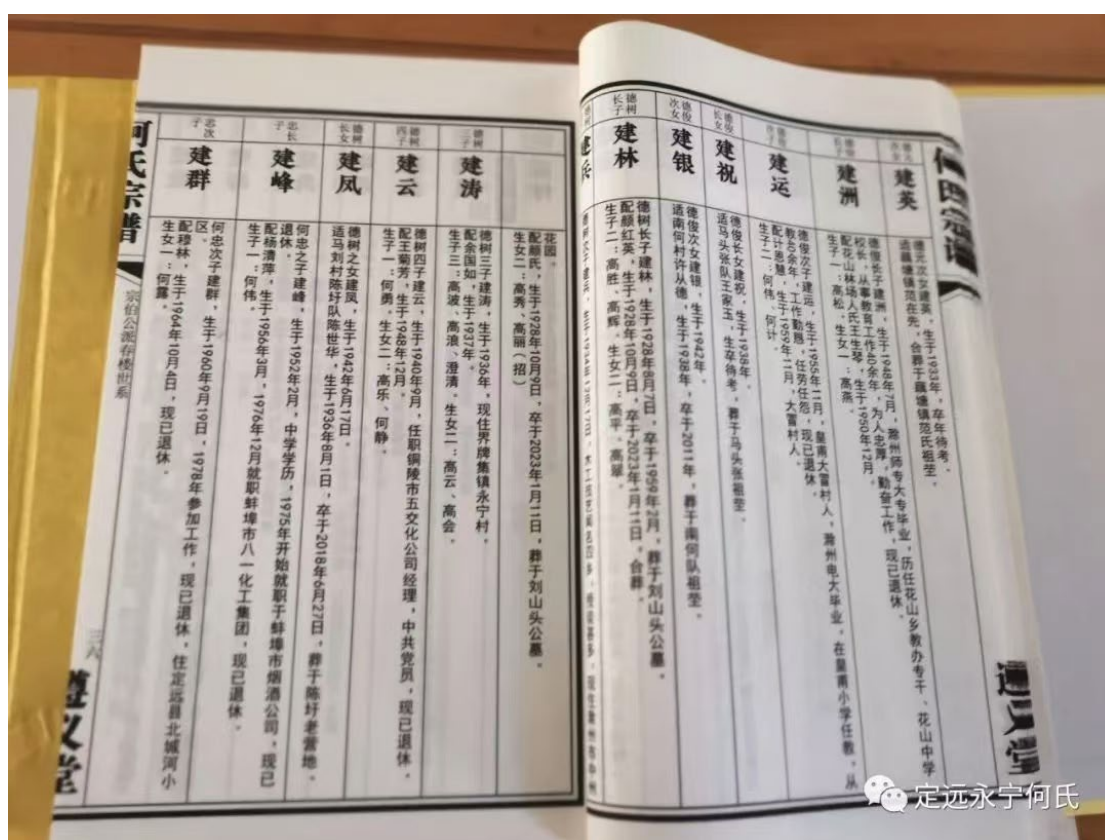 何氏宗谱
遵义堂
德元次女
建英
德元次女建英，生于1933年，卒年待考。
适藕塘镇范在先，合葬于藕塘镇范氏祖茔。
建洲
德俊长子建洲，生于1948年7月，滁州师专大专毕业，历任花山乡教办专干、花山中学
校长，从事教育工作40余年，为人忠厚，勤奋工作，现已退休。
配花山林场人氏王生琴，生于1950年12月。
生子一：高松，生女一：高燕。
建运
德俊次子建运，生于1955年12月，皇甫大雷村人，滁州电大毕业，在皇甫小学任教，从
教40余年，工作勤恳，任劳任怨，现已退休。
配计恩慧，生于1959年11月，大雷村人。
生子二：何伟、何计。
德俊长女
建祝
德俊长女建祝，生于1938年。
适马头张队王家玉，生卒待考，葬于马头张祖茔。
德俊次女
建银
德俊次女建银，生于1942年。
适南何村许从德，生于1938年，卒于2011年，葬于南何队祖茔。
德树长子
建林
德树长子建林，生于1928年8月7日，卒于1959年2月，葬于刘山头公墓。
配颜红英，生于1928年10月9日，卒于2023年1月11日，合葬。
生子二：高胜、高辉。生女二：高平、高翠。
建兵
花园。
配颜氏，生于1928年10月9日，卒于2023年1月11日，葬于刘山头公墓。
生女二：高秀、高丽（招）
德树三子
建涛
德树三子建涛，生于1936年，现住界牌集镇永宁村。
配余国如，生于1937年。
生子三：高波、高浪、澄清。生女二：高云、高会。
德树四子
建云
德树四子建云，生于1940年9月，任职铜陵市五交化公司经理，中共党员，现已退休。
配王菊芳，生于1948年12月。
生子一：何勇。生女二：高乐、何静。
德树长女
建凤
德树之女建凤，生于1942年6月17日。
适马刘村陈圩队陈世华，生于1936年8月1日，卒于2018年6月27日，葬于陈圩老营地。
忠长子
建峰
何忠之子建峰，生于1952年2月，中学学历，1975年开始就职于蚌埠市烟酒公司，现已
退休。
配杨清萍，生于1956年3月，1976年12月就职蚌埠市八一化工集团，现已退休。
生子一：何伟。
忠次子
建群
何忠次子建群，生于1960年9月19日，1978年参加工作，现已退休，住定远县北城河小
区。
配穆林，生于1964年10月4日，现已退休。
生女一：何露。
何氏宗谱
宗伯公派春楼世系
三六
遵义堂
定远永宁何氏